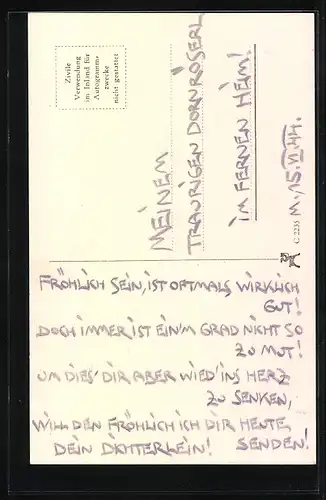 Zivile
Verwendung
im Inland für
Autogramm-
zwecke
nicht gestattet
MEINEM
TRAURIGEN DORNRÖSERL
IM FERNEN HEIM!
M., 15. VI. 44.
C 2235
FRÖHLICH SEIN, IST OFTMALS WIRKLICH
GUT!
DOCH IMMER IST EIN'M GRAD NICHT SO
ZU MUT!
UM DIES' DIR ABER WIED' INS HERZ
ZU SENKEN,
WILL DEN FRÖHLICH ICH DIR HEUTE
SENDEN!
DEIN DICHTERLEIN!